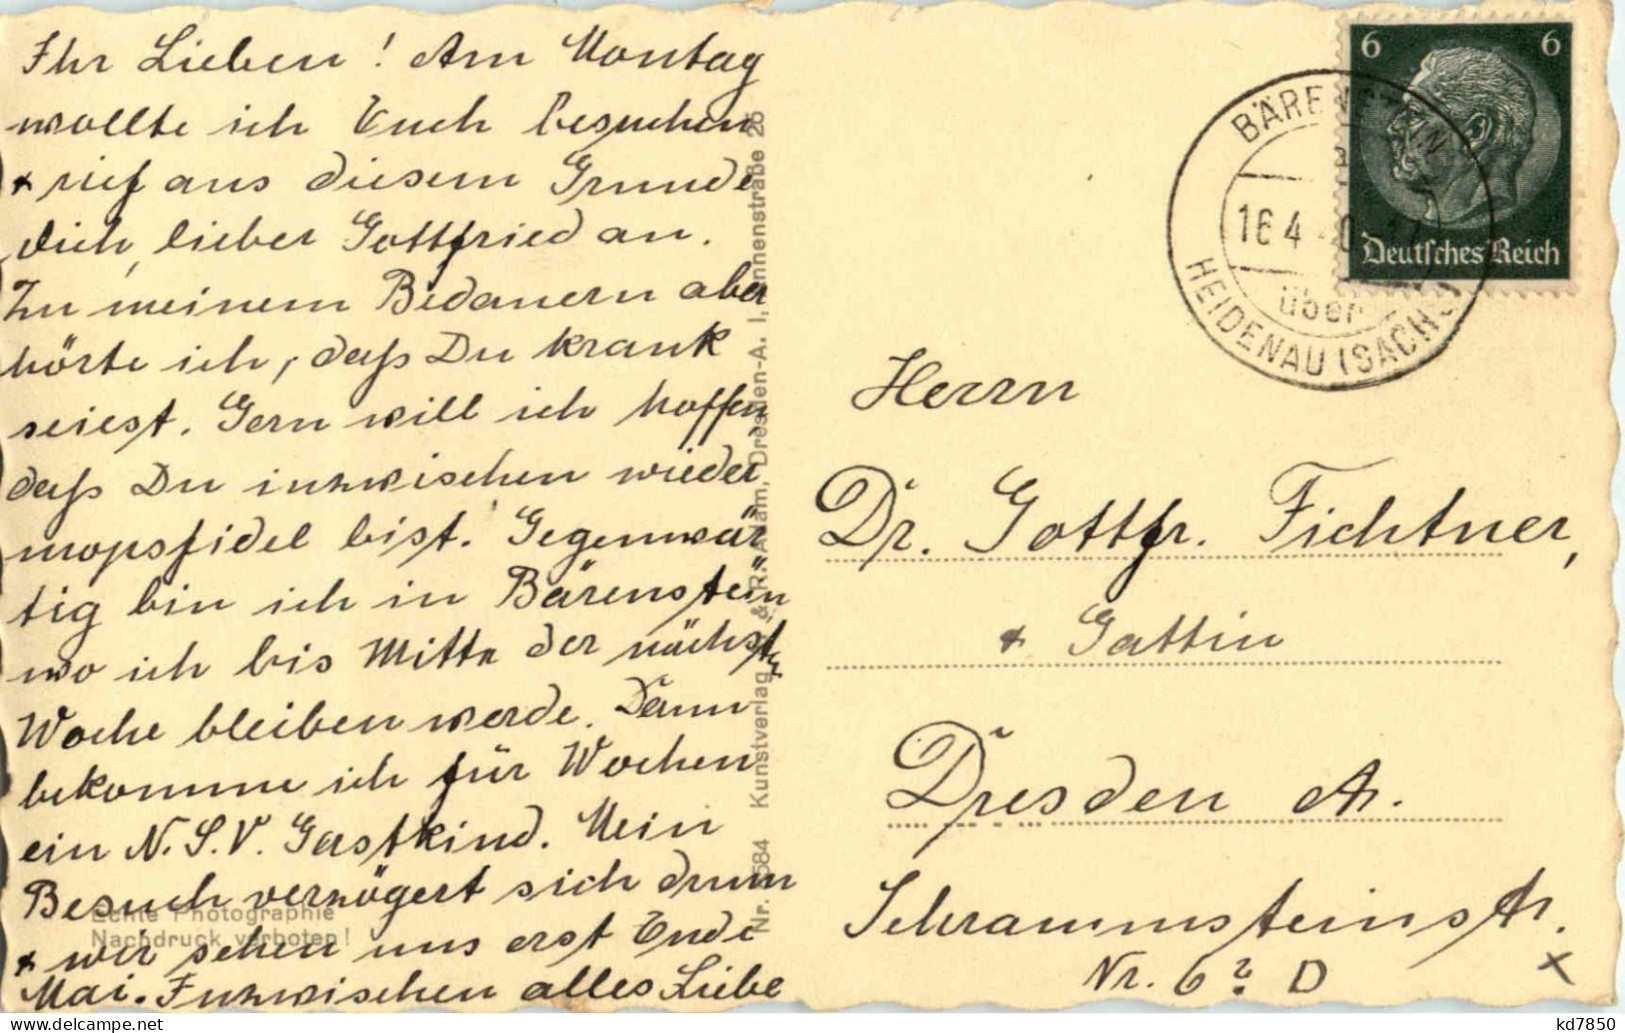 Ihr Lieben! Am Montag
wollte ich Euch besuchen
+ rief aus diesem Grunde
dich, lieber Gottfried an.
Zu meinem Bedauern aber
hörte ich, daß Du krank
seiest. Gern will ich hoffen
daß Du inzwischen wieder
mopsfidel bist. Gegenwär
tig bin ich in Bärenstein
wo ich bis Mitte der nächsten
Woche bleiben werde. Dann
bekomme ich für Wochen
ein N.S.V. Gastkind. Mein
Besuch verzögert sich drum
+ wir sehen uns erst Ende
Mai. Inzwischen alles Liebe
Echte Photographie
Nachdruck verboten!
Kunstverlag
Dresden-A. I,
6 6
Deutsches Reich
BÄRENSTEIN
16 4
über
HEIDENAU (SACHS)
Herrn
Dr. Gottfr. Fichtner,
+ Gattin
Dresden A.
Schrammsteinstr.
Nr. 6? D
kd7850